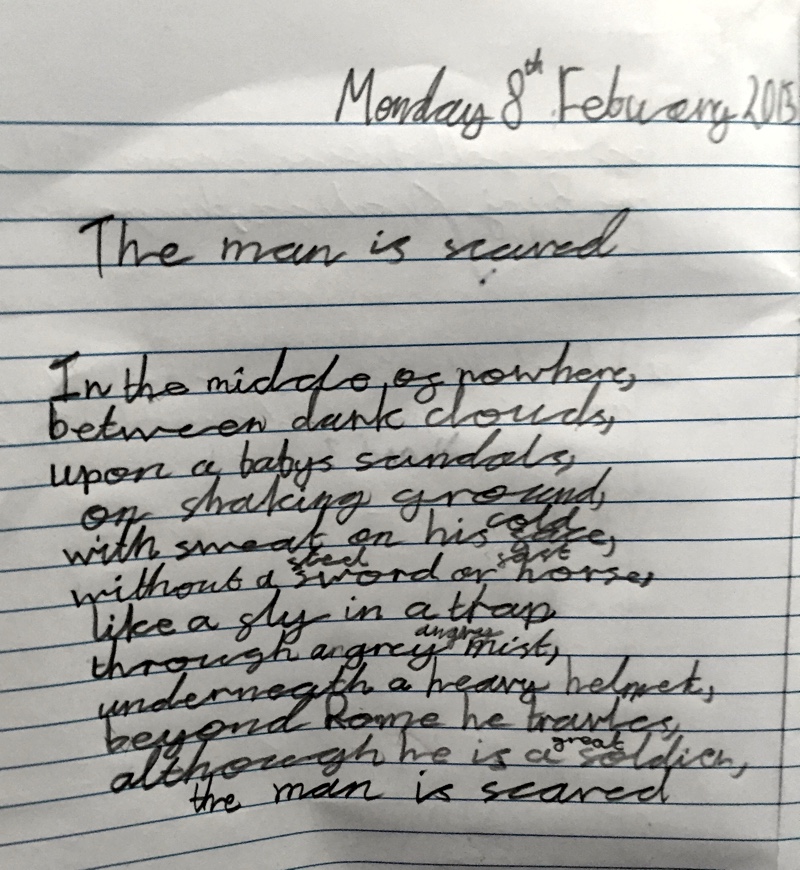 Monday 8th Febuary 2015
The man is scared
In the middle of nowhere,
between dark clouds,
upon a babys sandals,
on shaking ground,
with sweat on his cold face,
without a steel sword or fast horse,
like a fly in a trap
through angrey angrey mist,
underneath a heavy helmet,
beyond Rome he travles,
although he is a great soldier,
the man is scared